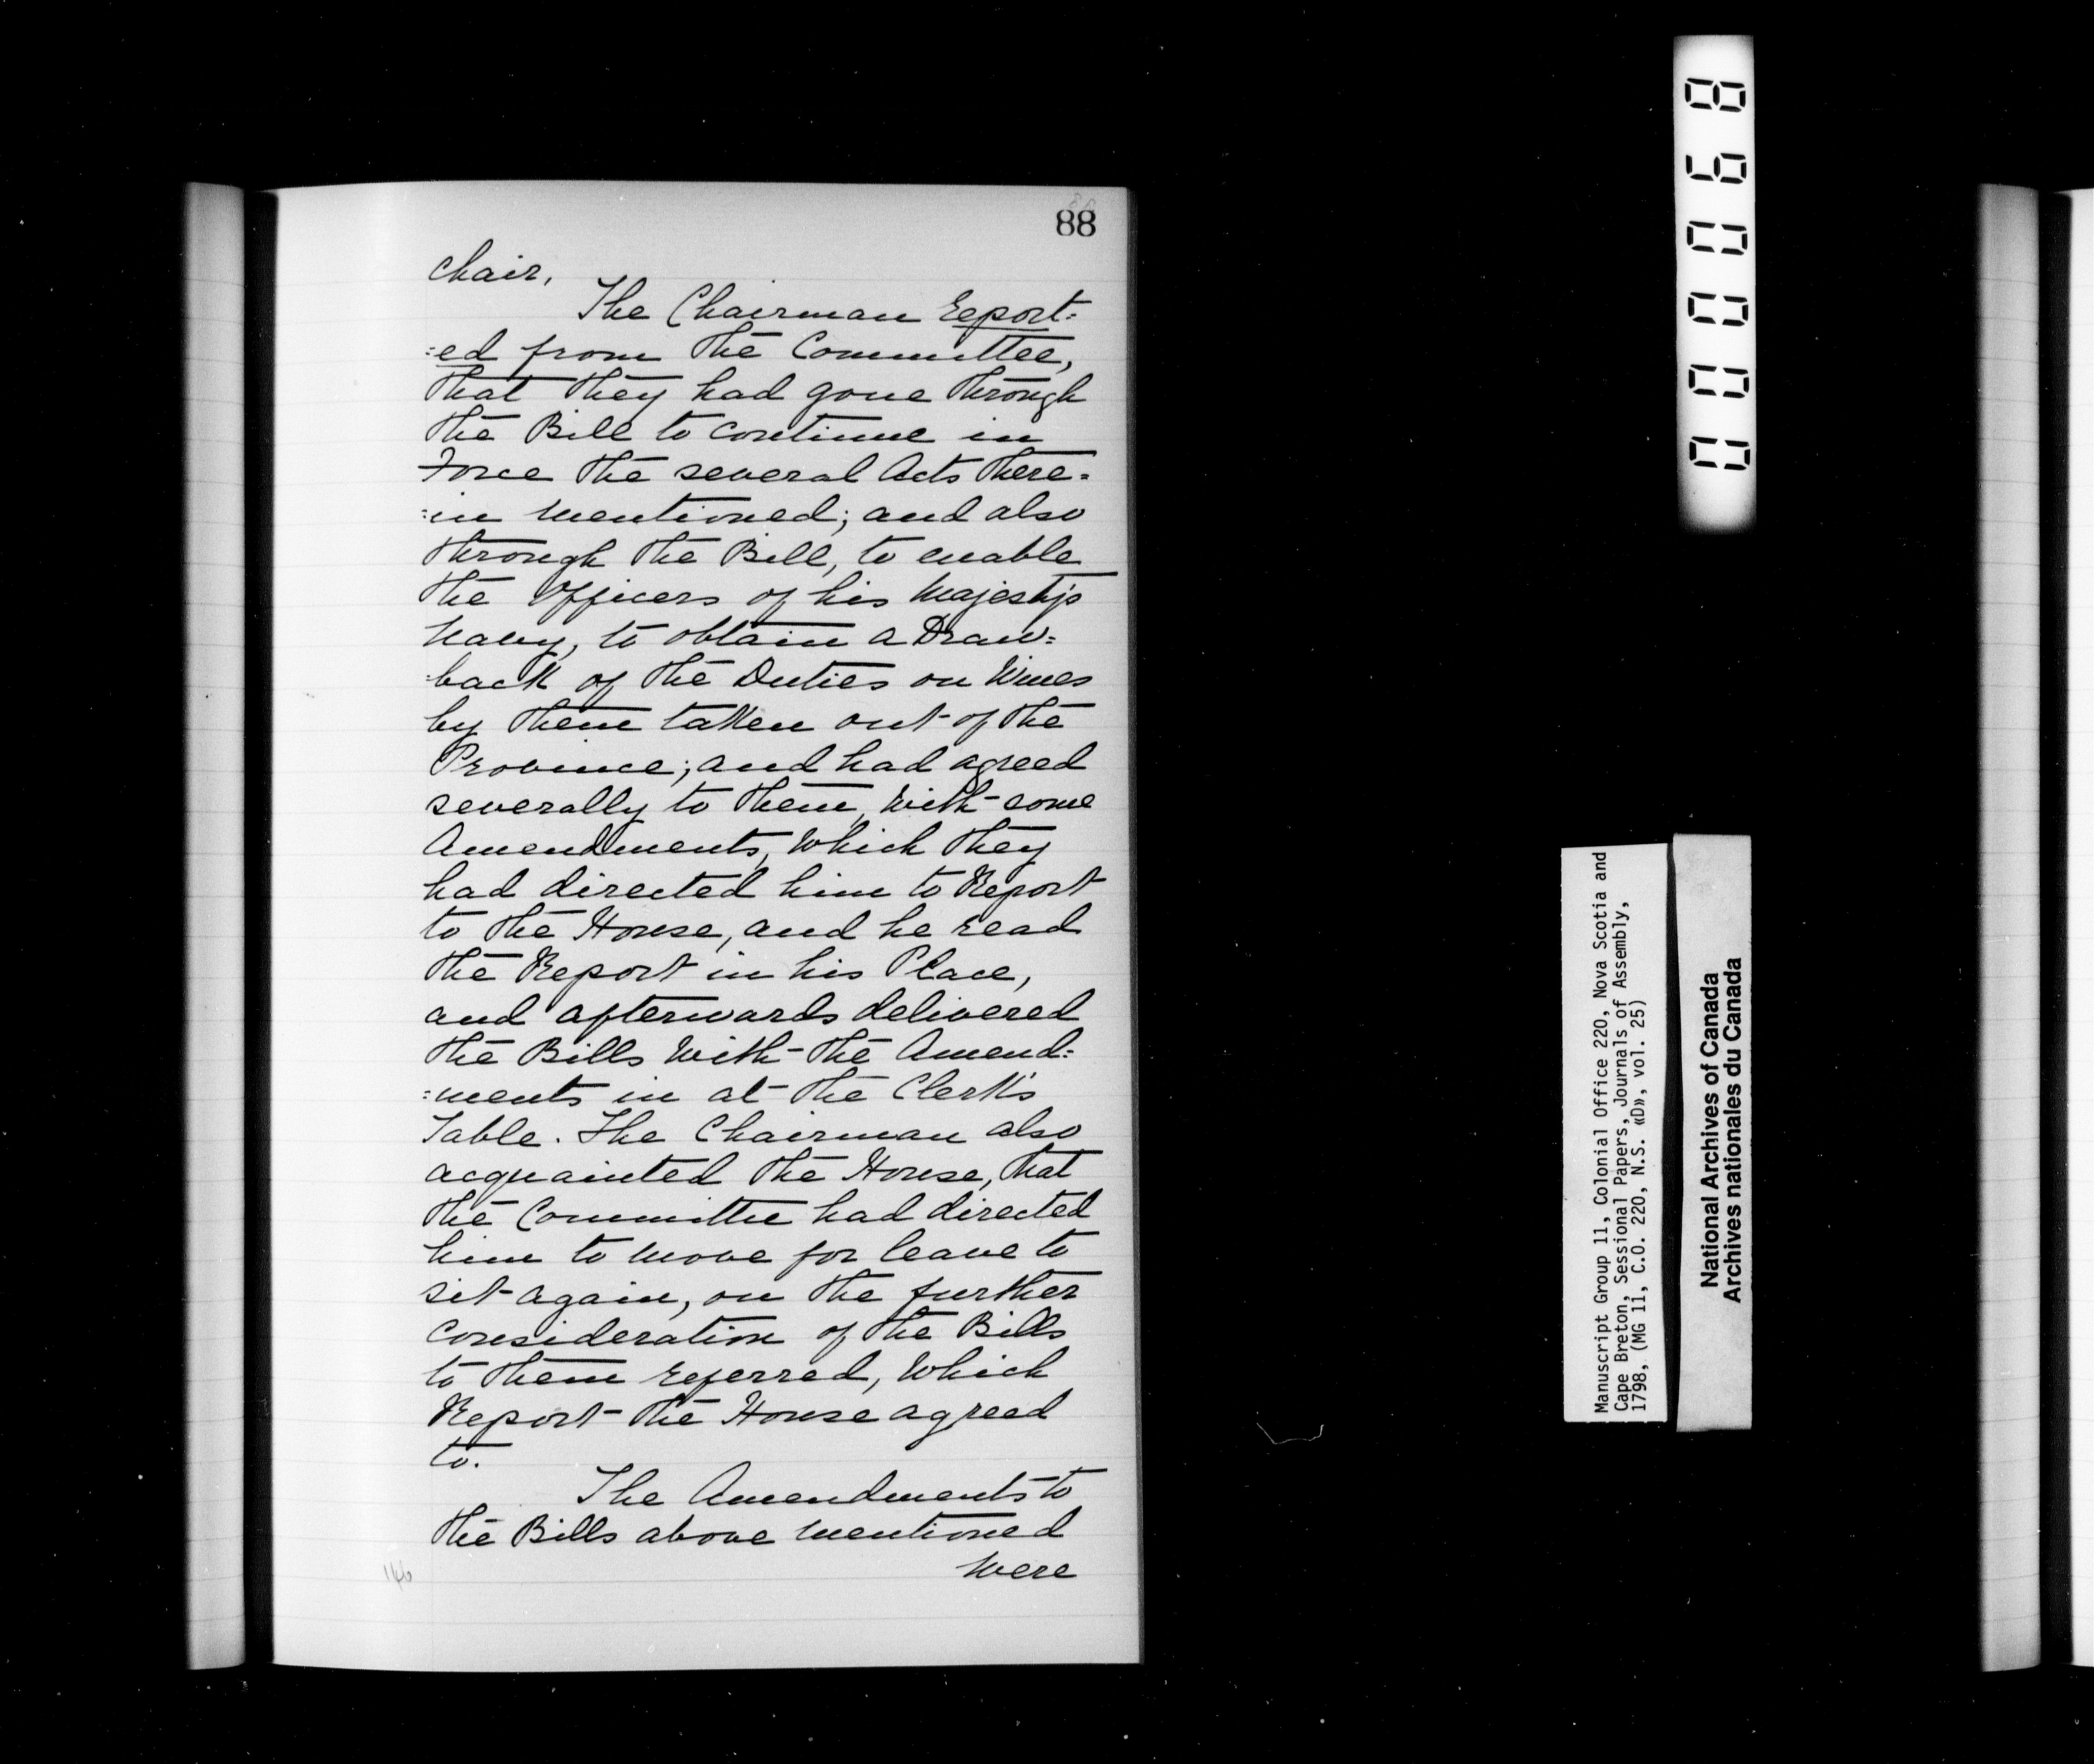 88
chair.
The Chairman report=
=ed from the Committee,
that they had gone through
the Bill to continue in
Force the several Acts there=
=in mentioned; and also
through the Bill, to enable
the Officers of his Majesty's
Navy, to obtain a Draw=
=back of the Duties on Wines
by them taken out of the
Province; and had agreed
severally to them, with some
Amendments, which they
had directed him to Report
to the House, and he read
the Report in his Place,
and afterwards delivered
the Bills with the Amend=
=ments in at the Clerk's
Table. The Chairman also
acquainted the House, that
the Committee had directed
him to move for leave to
sit again, on the further
consideration of the Bills
to them referred, which
Report the House agreed
to.
The Amendments to
the Bills above mentioned
were
146
000068
Manuscript Group 11, Colonial Office 220, Nova Scotia and
Cape Breton, Sessional Papers, Journals of Assembly,
1798, (MG 11, C.O. 220, N.S. «D», vol. 25)
National Archives of Canada
Archives nationales du Canada